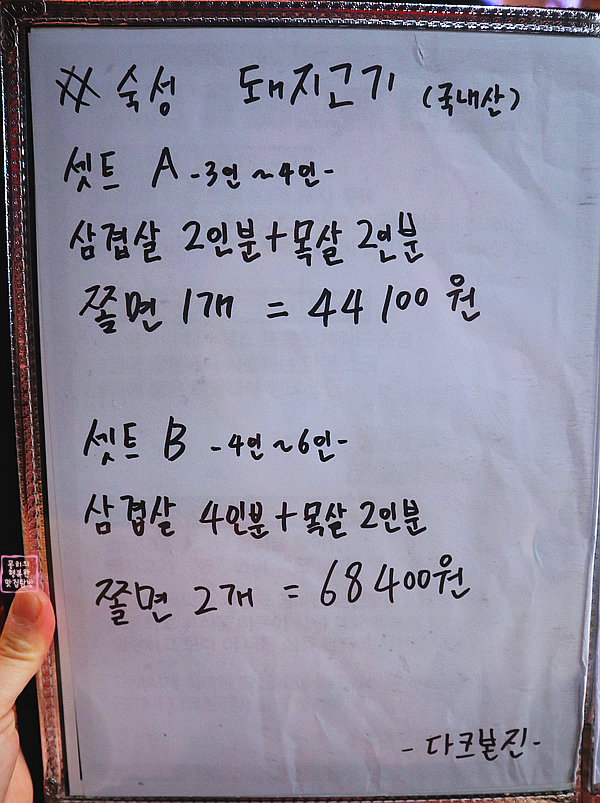 ※ 숙성 돼지고기 (국내산)
셋트 A -3인~4인-
삼겹살 2인분+목살 2인분
쫄면 1개 = 44100원
셋트 B -4인~6인-
삼겹살 4인분+목살 2인분
쫄면 2개 = 68400원
-다크본진-
몽히의
행복한
맛집탐방